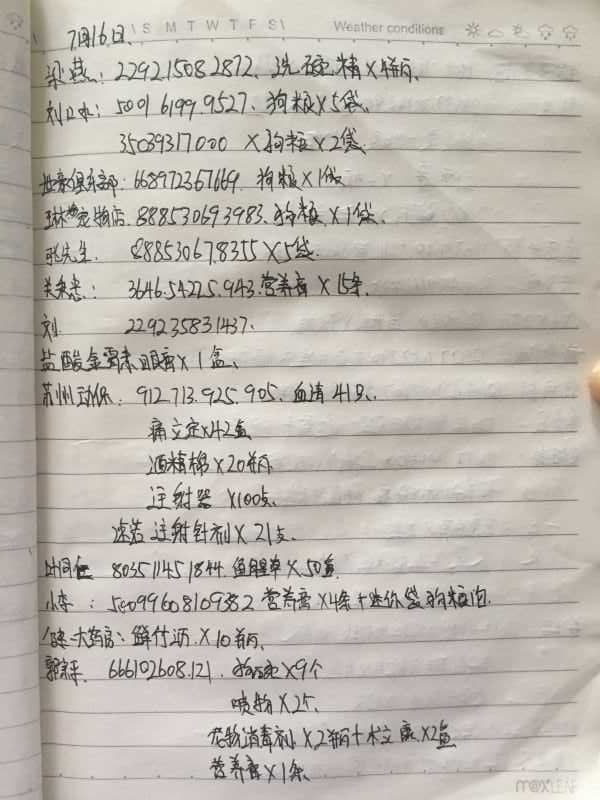 S M T W T F S Weather conditions
7月16日.
梁燕: 229215082872、洗 精×4瓶、
刘 : 5001 6199.9527、狗粮×5袋、
35039317000 ×狗粮×2袋
俱乐部: 668972367669. 狗粮×1袋
琳 宠物店. 888530693983. 狗粮×1袋.
张先生. 888530678355×5袋.
关 : 3646.54225.943.营养膏×15条.
刘 229235831437.
盐酸金霉素眼膏×1盒、
苏州动保: 912.713.925.905. 血清41只.
痛立定×42盒
酒精棉×20瓶
注射器 ×100支.
速诺 注射针剂×21支.
803511451844. ×50盒
小李: 50099608109382 营养膏×4条+迷你袋狗粮1包.
一大药房: 鲜竹沥×10瓶.
郭 . 666102608.121. ×9个
喷物×2个.
宠物消毒剂×2瓶+ ×2盒
营养膏×1条
M@XLEAF